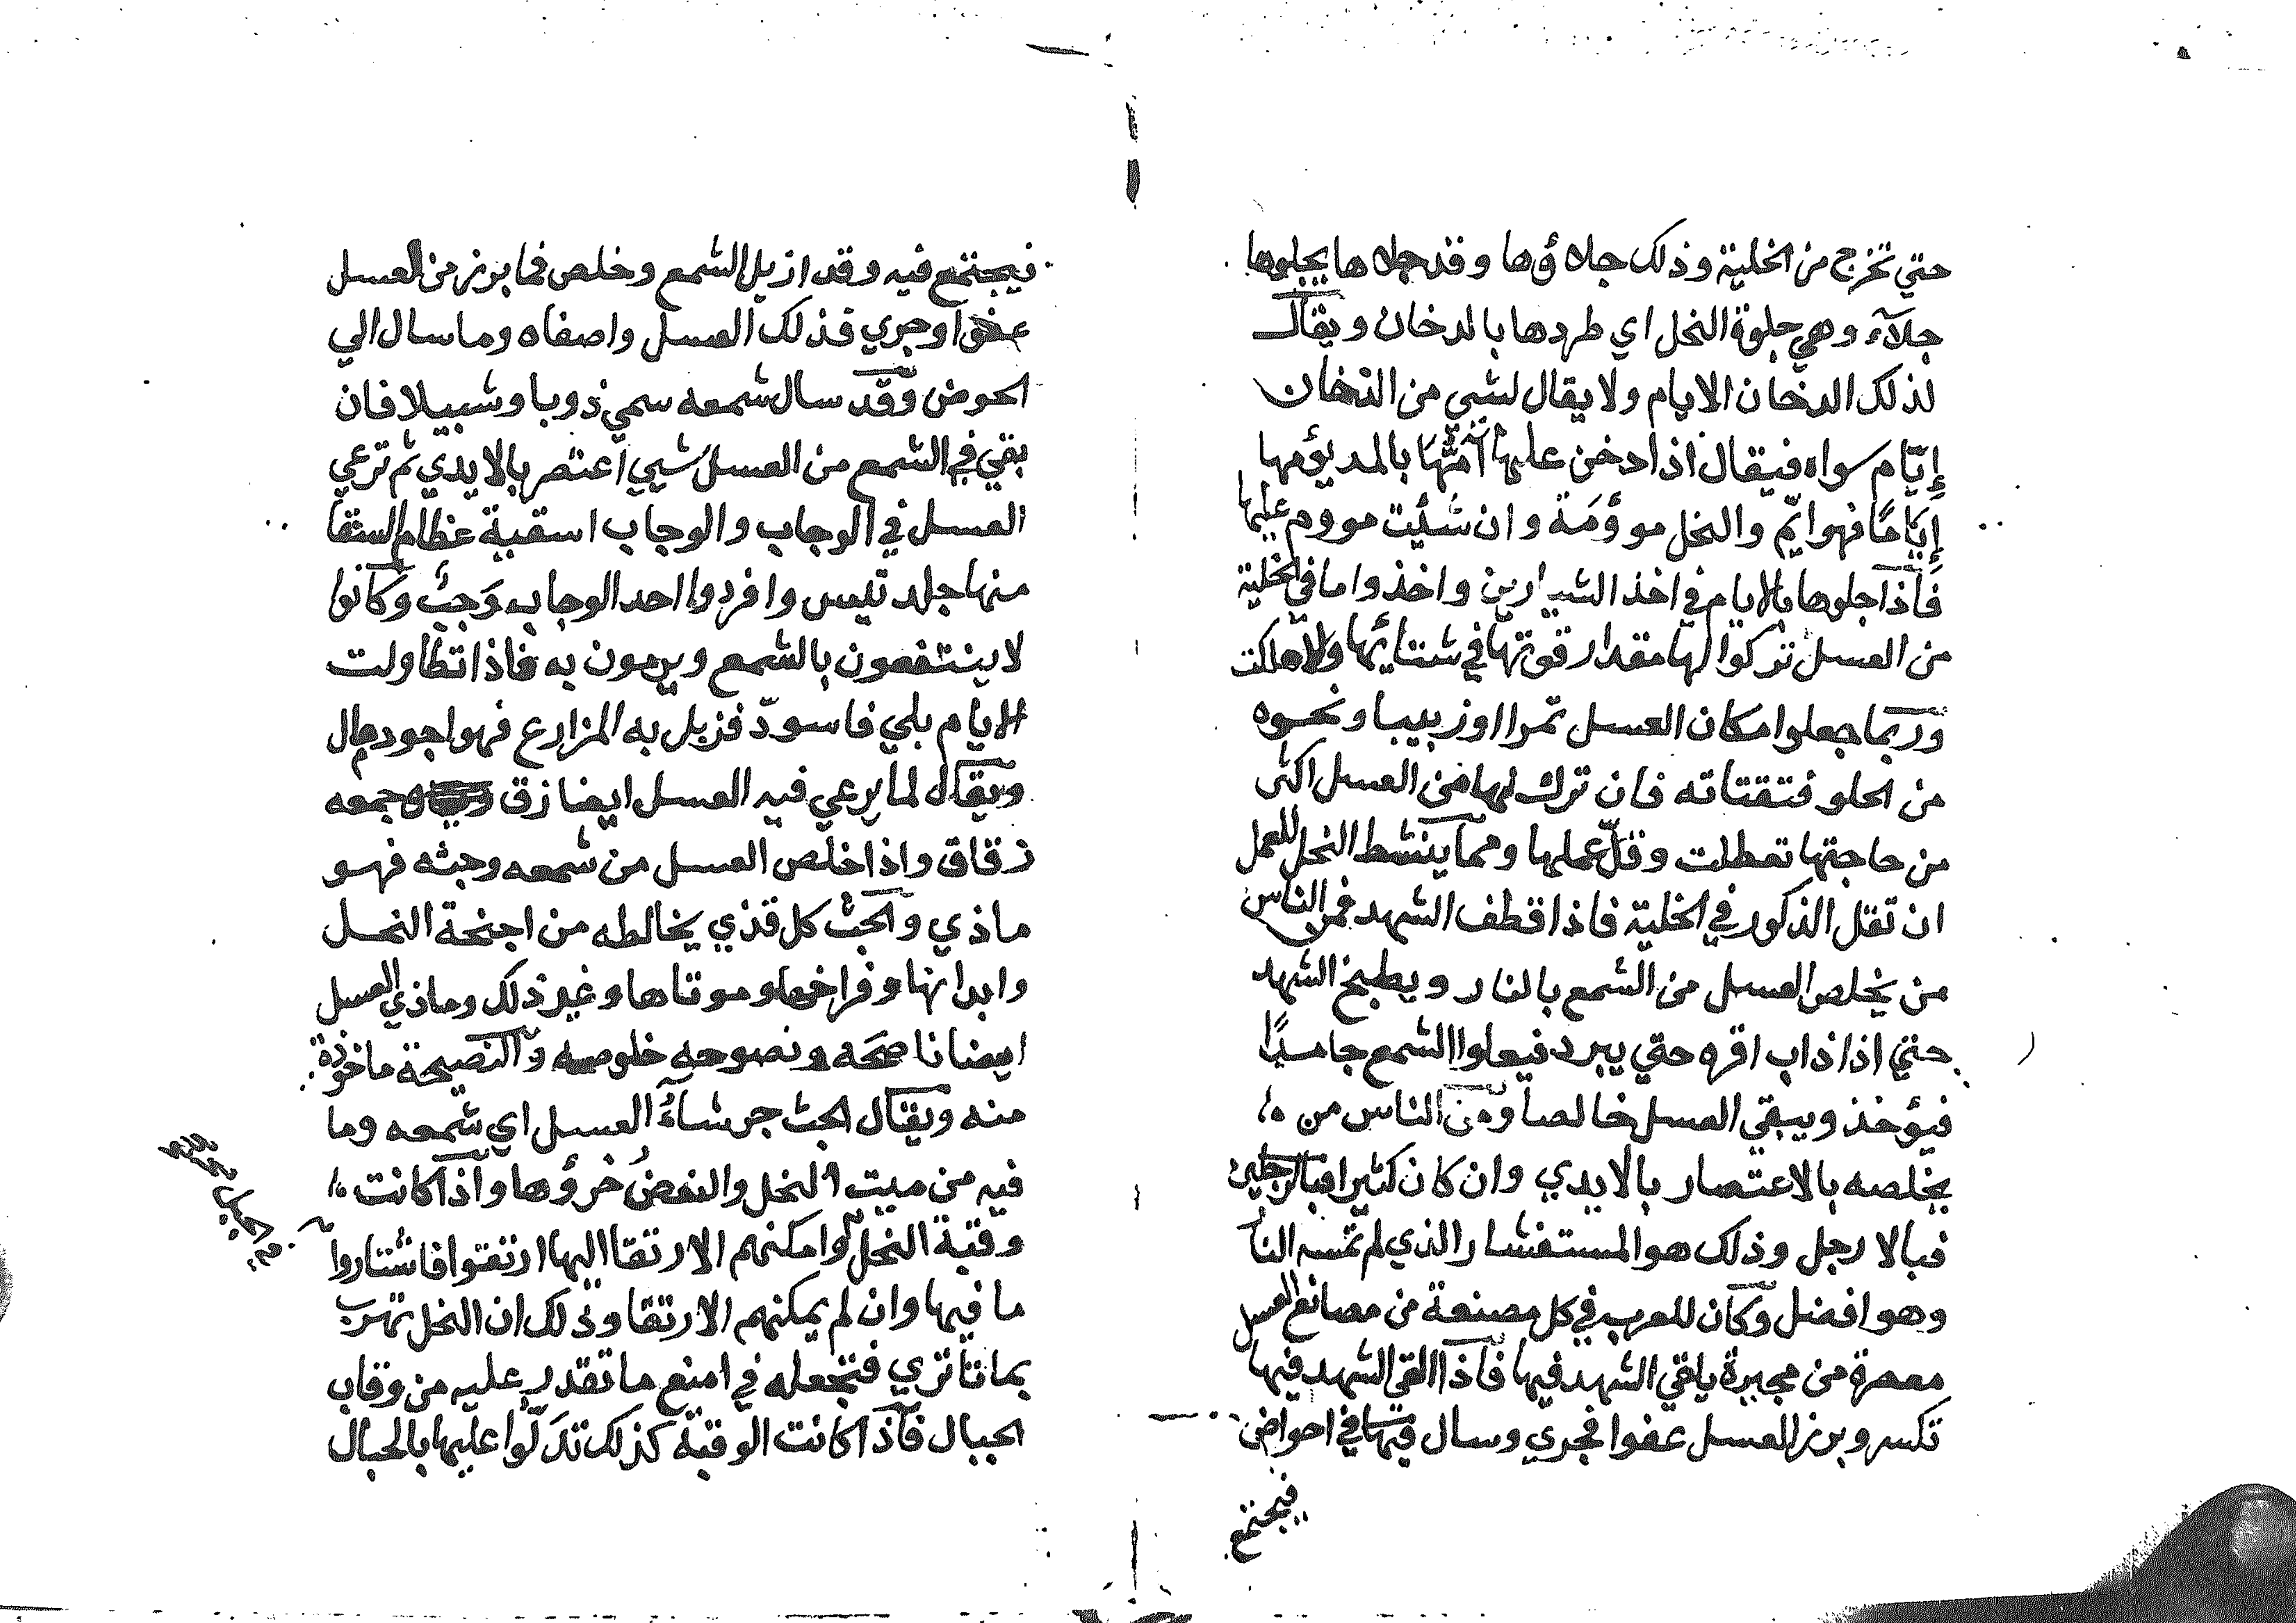 حتي تخرج من الخلية وذلك جلاؤها وقد جلاها يجلوها
جلاء وهي جلوة النحل اي طردها بالدخان ويقال
لذلك الدخان الايام ولا يقال لشي من الدخان
إيّام سواه فيقال اذا دخن عليها آمَّهَا بالمد يؤمها
إيَامًا فهو ايّم والنحل موؤمَة وان شئت مووم عليها
فاذا جلوها بالايام في اخذ الشيارين واخذوا ما في الخلية
من العسل تركوا لها مقدار قوتها في شتائها والا هلكت
وربما جعلوا مكان العسل تمرا اوزبيبا ونحوه
من الحلو فتقتاته فان ترك لها من العسل اكثر
من حاجتها تعطلت وقلّ عملها ومما ينشط النحل للعمل
ان تقتل الذكور في الخلية فاذا قطف الشهد فمن الناس
من يخلص العسل من الشمع بالنار ويطبخ الشهد
حتي اذا ذاب اقره حتي يبرد فيعلوا الشمع جامدًا
فيؤخذ ويبقي العسل خالصا ومن الناس من
يخلصه بالاعتصار بالايدي وان كان كثيرا فبالرجلين
فبالارجل وذلك هو المستفشار الذي لم تمسه النار
وهو افضل وكان للعرب في كل مصنعة من مصانع العسل
معصرة من مجيرة يلقي الشهد فيها فاذا القي الشهد فيها
تكسر وبرز العسل عفوا فجري وسال فيها في احواض
فيجتمع
فيجتمع فيه وقد ازيل الشمع وخلص فما برز من العسل
عفوا وجري فذلك العسل واصفاه وما سال الي
الحوض وقد سال شمعه سمي ذوبا وشبيلا فان
بقي في الشمع من العسل شيي اعتصر بالايدي ثم ترعي
العسل في الوجاب والوجاب اسقية عظام السقا
منها جلد تيس وافردوا احد الوجاب وَجبٌ وكانوا
لا ينتفعون بالشمع ويرمون به فاذا تطاولت
الايام بلي فاسودّ فزبل به المزارع فهو اجود مال
ويقال لما يرعي فيه العسل ايضا زق وجمعه
زقاق واذا خلص العسل من شمعه وجثه فهو
ماذي والجث كل قذي يخالطه من اجنحة النحل
وابدانها وفراخها وموتاها وغير ذلك وماذي العسل
ايضا ناصحَه ونصوحه خلوصه والنصيحة ماخوذة
منه ويقال الجث جرشاءُ العسل اي شمعه وما
فيه من ميت النحل والنعضُ خرؤها واذا كانت
وقبة النحل لو امكنهم الارتقا اليها ارتقوا فاشتاروا
ما فيها وان لم يمكنهم الارتقا وذلك ان النحل تهرب
بما تاتري فتجعله في امنع ما تقدر عليه من وقاب
الجبال فاذا كانت الوقبة كذلك تدَلّوا عليها بالحبال